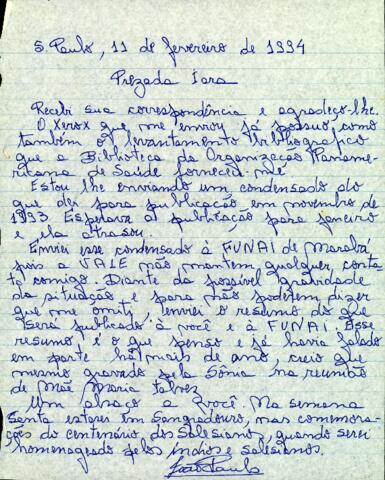 S. Paulo, 11 de fevereiro de 1994
Prezada Iara
Recebi sua correspondência e agradeço-lhe.
O Xerox que me enviou já possuo, como
também o levantamento bibliográfico
que a Biblioteca da Organização Paname-
ricana de Saúde forneceu-me
Estou lhe enviando um condensado do
que dei para publicação em novembro de
1993 Esperava a publicação para janeiro
e ela atrasou.
Enviei esse condensado à FUNAI de Marabá
pois a VALE não mantem qualquer conta
to comigo. Diante da possível gravidade
da situação e para não poderem dizer
que me omiti, enviei o resumo do que
será publicado à você e à FUNAI. Esse
resumo, é o que penso e já havia falado
em parte há mais de ano, creio que
mesmo gravado pela Sônia na reunião
de Mãe Maria talvez
Um abraço a você. Na semana
Santa estarei em Sangradouro, nas comemora-
ções do centenário dos Salesianos, quando serei
homenageado pelos índios e salesianos.
João Paulo